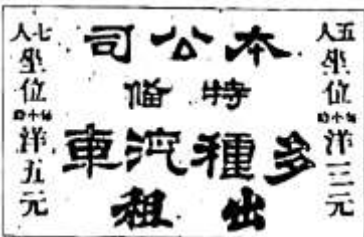 五人
坐位
洋三元
本公司
特備
多種汽車
出租
七人
坐位
洋五元